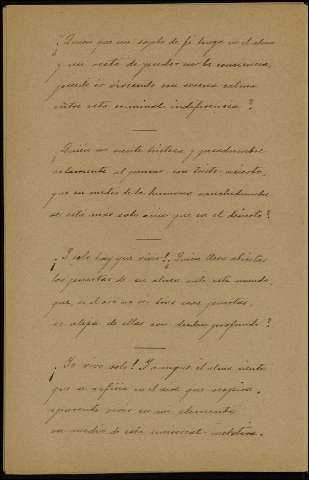 ¿Quién que un soplo de fé tenga en el alma
y un resto de pudor en la conciencia,
puede ir viviendo con serena calma
entre esta criminal indiferencia?
¿Quién no siente tristeza y pesadumbre
solamente al pensar, con tedio incierto,
que en medio de la humana muchedumbre
se está mas solo aún que en el desierto?
¿Y solo hay que vivir? ¿Quién deja abiertas
las puertas de su alma ante este mundo,
que, si
se aleja de ellas con desdén profundo?
¡Yo vivo solo! Y aunque el alma siente
que se asfixia en el aire que respira,
aparento vivir en mi elemento
en medio de esta universal mentira.